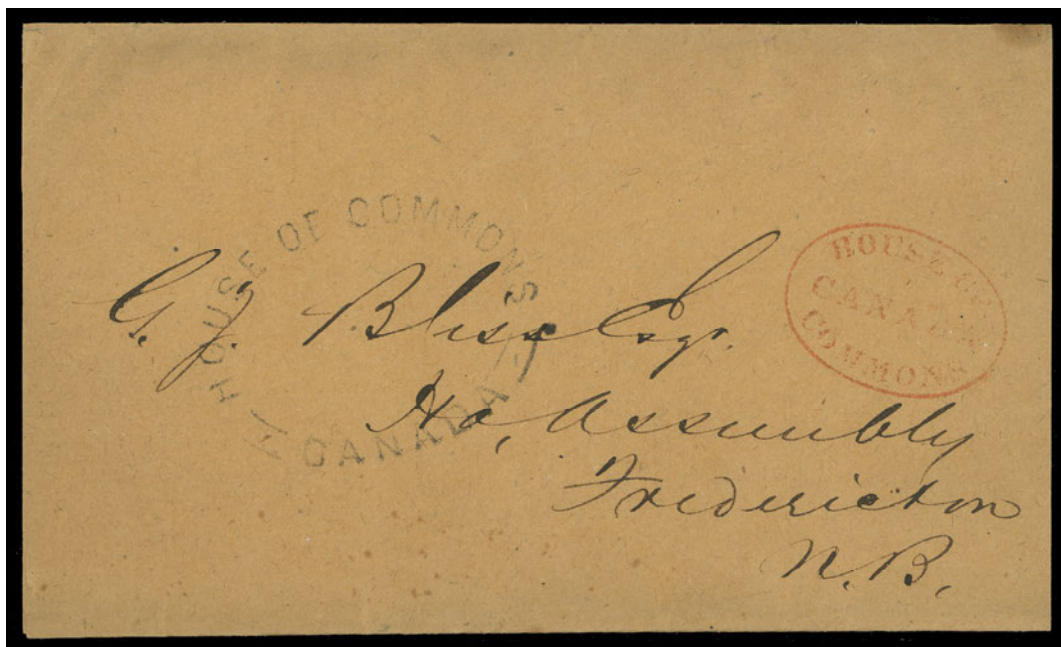 HOUSE OF COMMONS
CANADA
HOUSE OF
CANADA
COMMONS
G. J. Bliss Esqr.
Ho, Assembly
Fredericton
N.B,